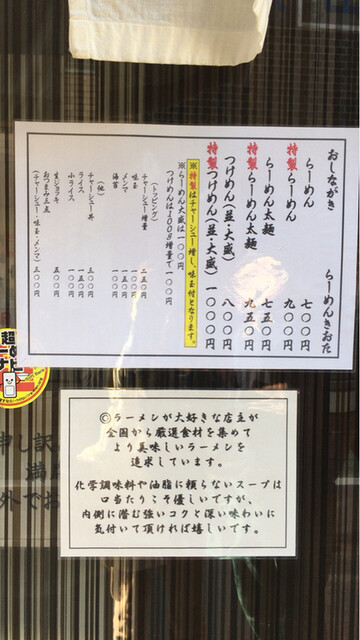 おしながき　らーめんきおた
らーめん　七〇〇円
特製らーめん　九〇〇円
らーめん太麺　七五〇円
特製らーめん太麺　九五〇円
つけめん(並・大盛)　八〇〇円
特製つけめん(並・大盛)　一〇〇〇円
※特製はチャーシュー増し、味玉付となります。
※らーめん大盛は一〇〇円
つけめんは100g増量で一〇〇円
(トッピング)
チャーシュー増量　二五〇円
味玉　一〇〇円
メンマ　一〇〇円
海苔　一〇〇円
(他)
チャーシュー丼　三〇〇円
ライス　一五〇円
小ライス　一〇〇円
生ジョッキ　五〇〇円
おつまみ三点　三〇〇円
(チャーシュー・味玉・メンマ)
©ラーメンが大好きな店主が
全国から厳選食材を集めて
より美味しいラーメンを
追求しています。
化学調味料や油脂に頼らないスープは
口当たりこそ優しいですが、
内側に潜む強いコクと深い味わいに
気付いて頂ければ嬉しいです。